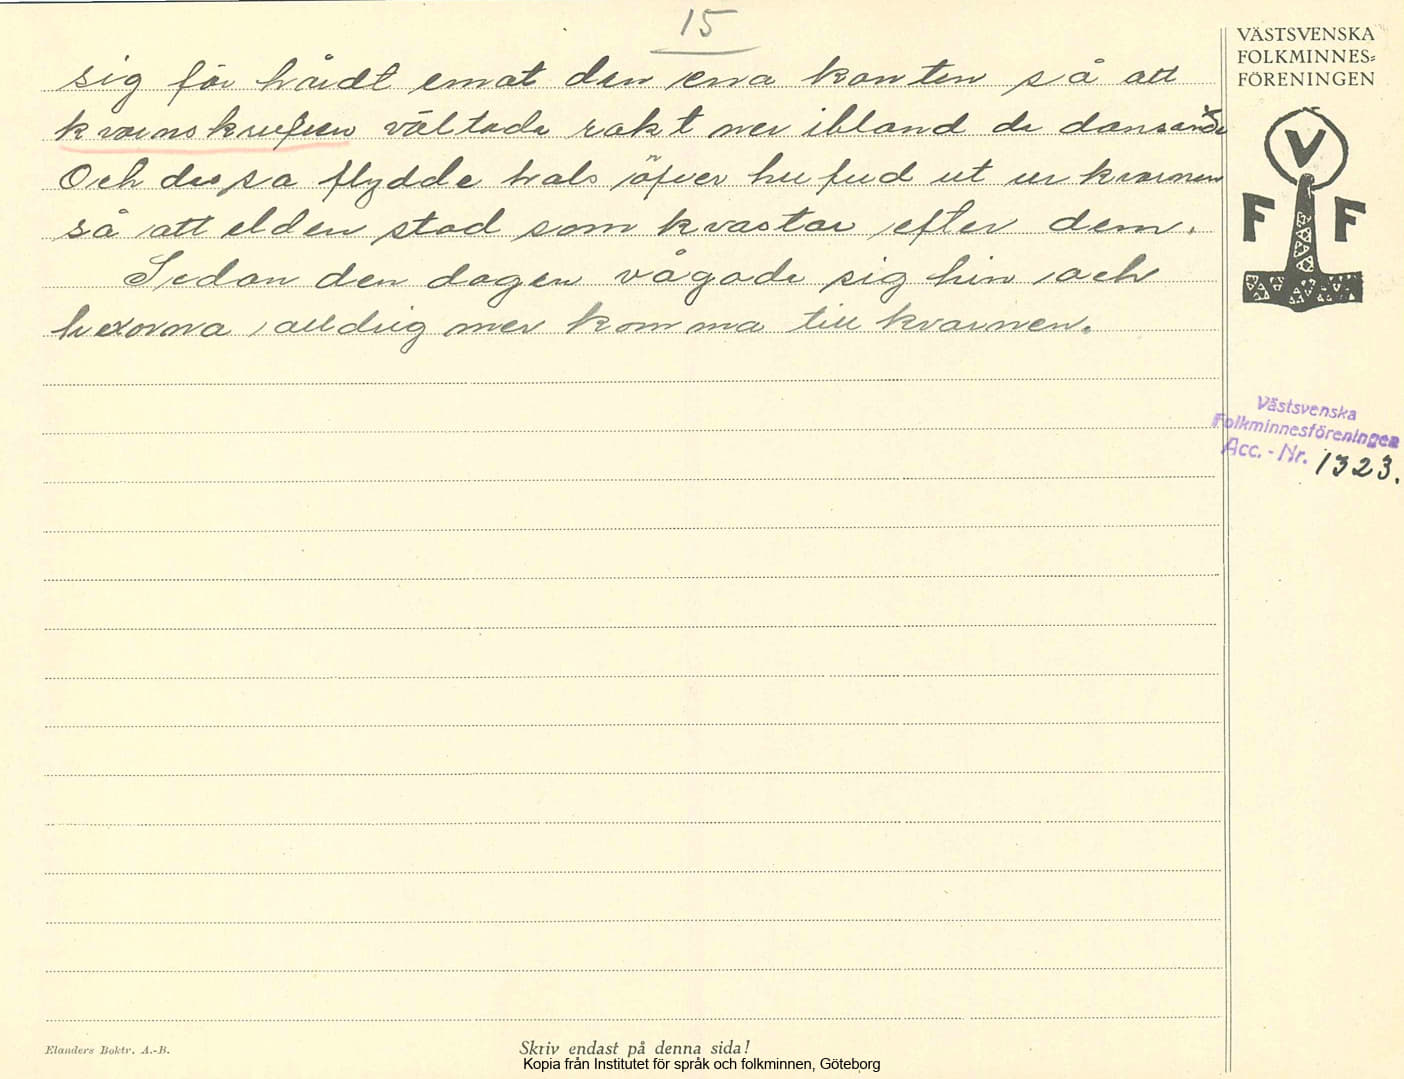 15
VÄSTSVENSKA
FOLKMINNES=
FÖRENINGEN
sig för hårdt emot den ena kanten så att
kvarnskrufven vältade rakt ner ibland de dansande
Och dessa flydde hals öfver hufud ut ur kvarnen
så att elden stod som kvastar efter dem.
Sedan den dagen vågade sig hin och
hexorna alldrig mer komma till kvarnen.
V
F F
Västsvenska
Folkminnesföreningen
Acc. - Nr. 1323.
Elanders Boktr. A.-B.
Skriv endast på denna sida!
Kopia från Institutet för språk och folkminnen, Göteborg